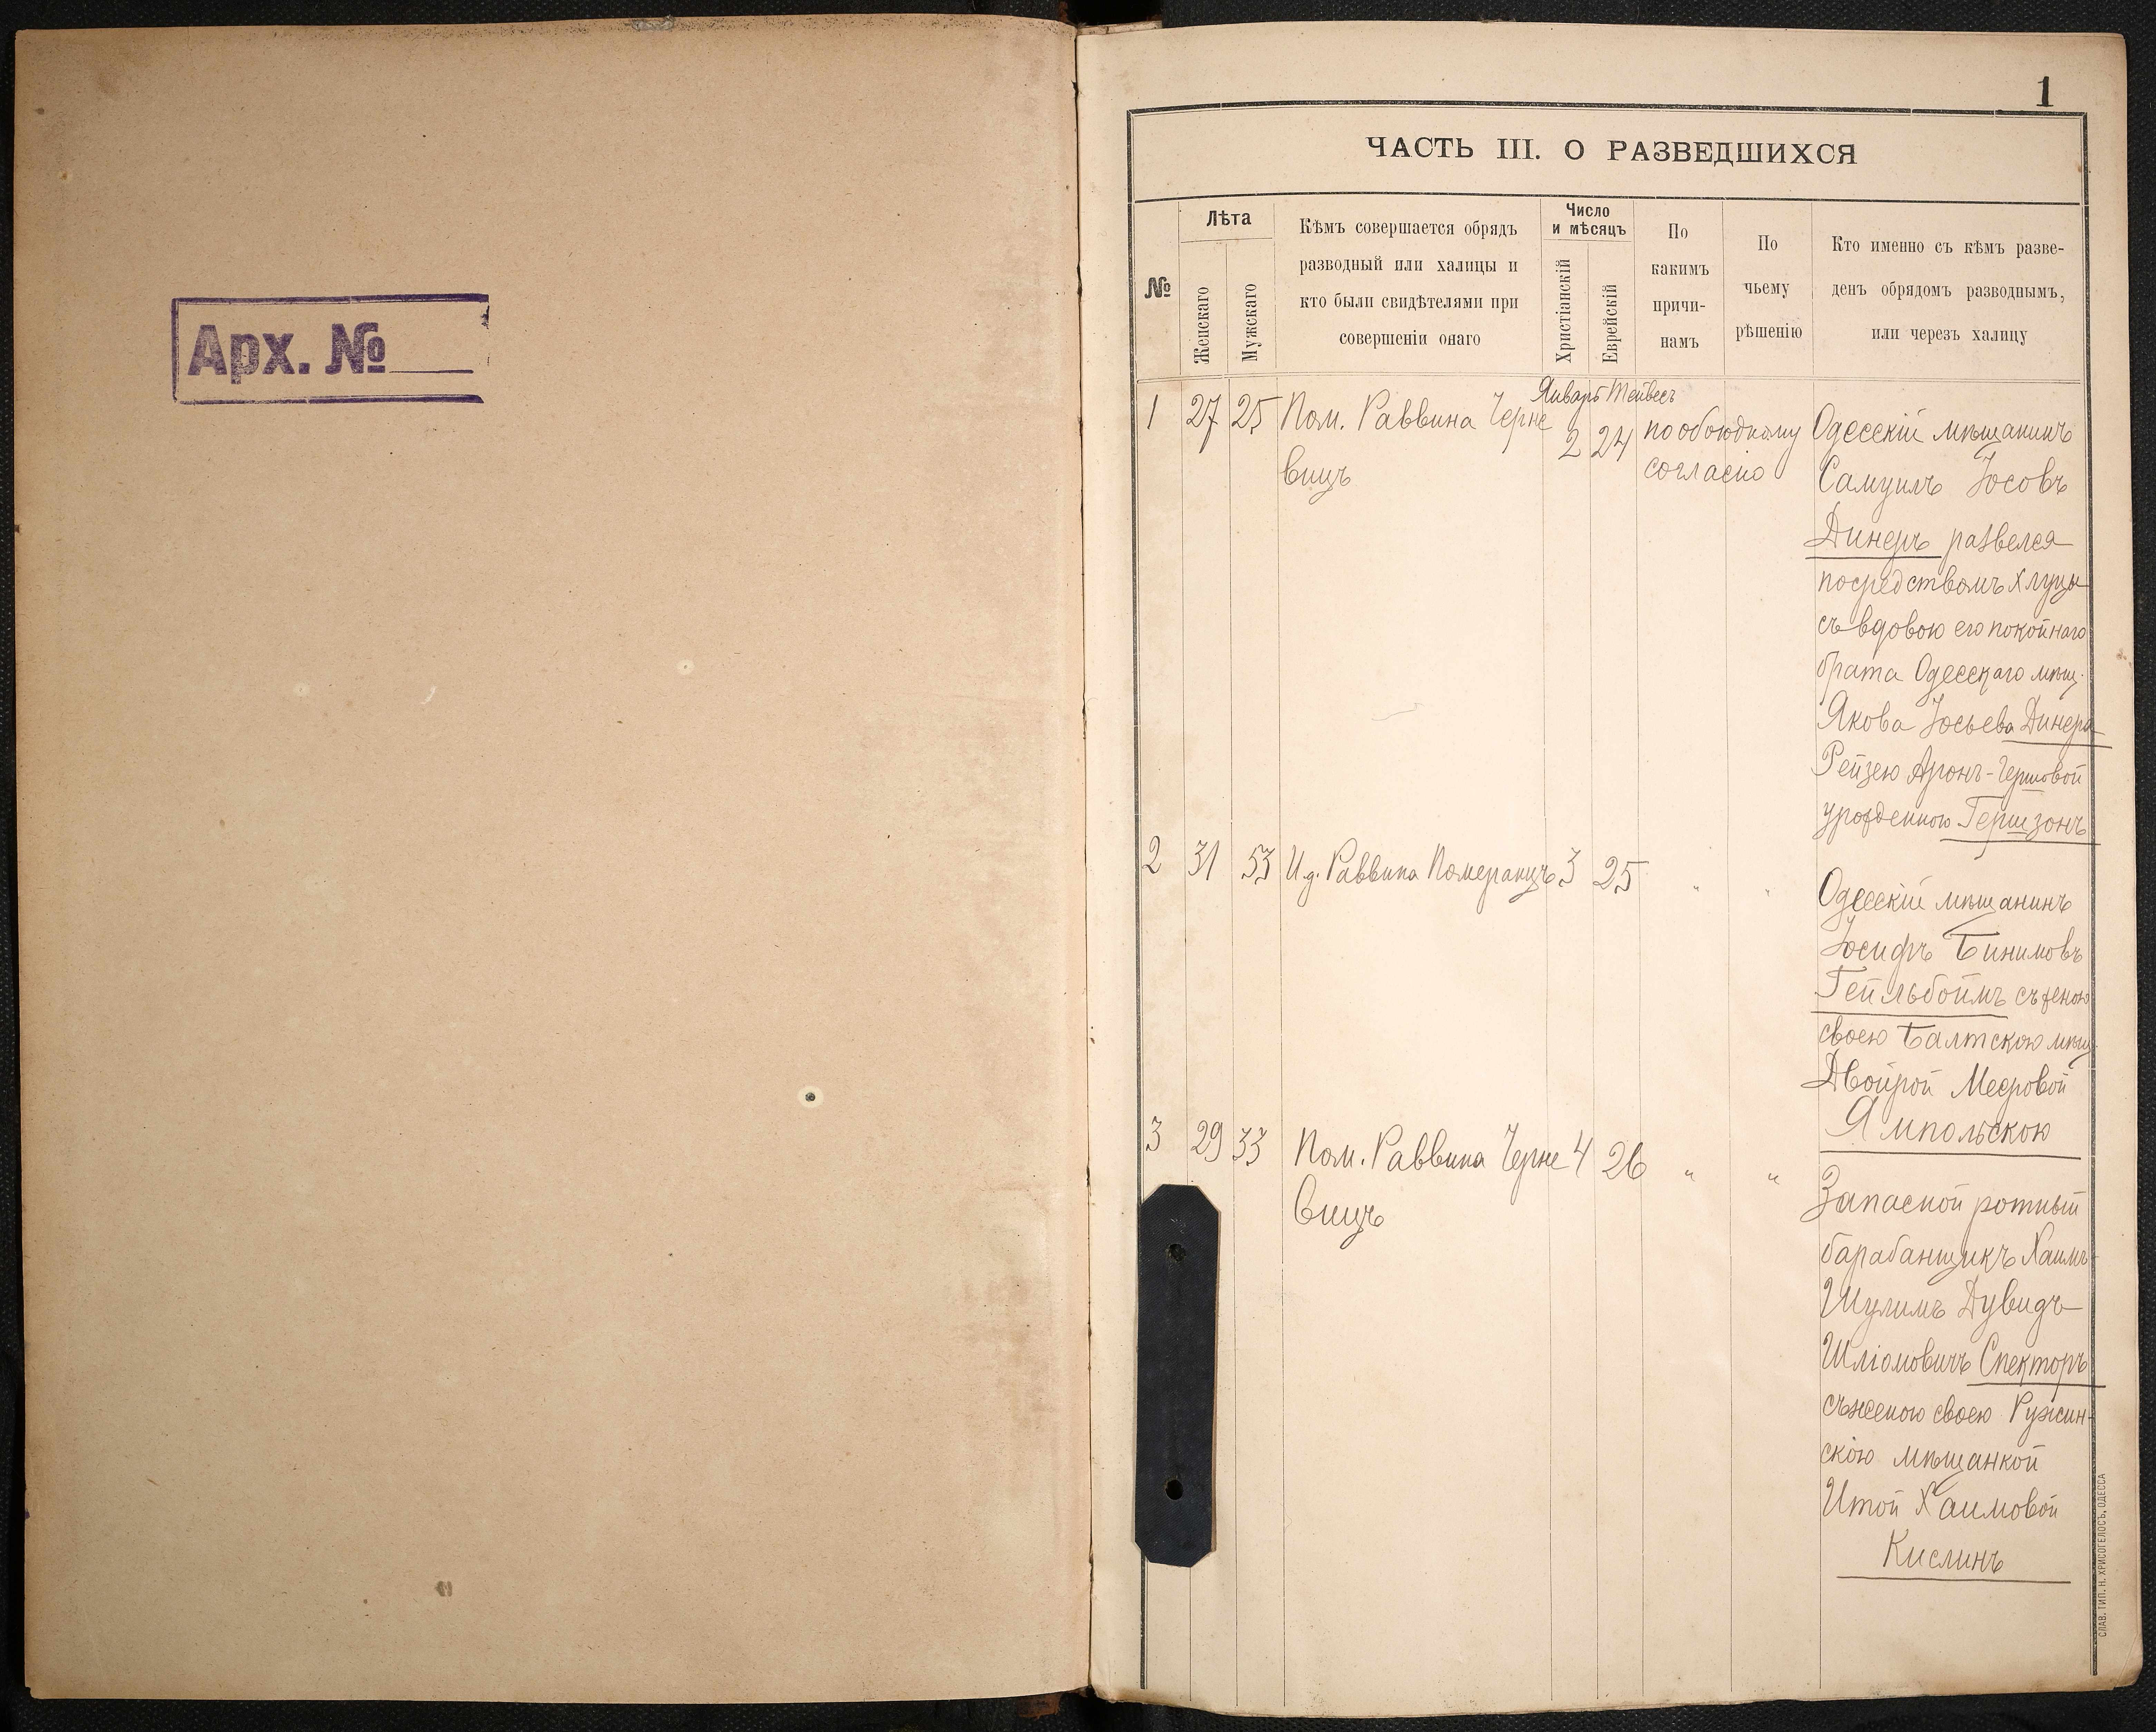 Арх. №
1
ЧАСТЬ III. О РАЗВЕДШИХСЯ
№
Лѣта
Женскаго
Мужскаго
Кѣмъ совершается обрядъ
разводный или халицы и
кто были свидѣтелями при
совершеніи онаго
Число
и мѣсяцъ
Христіанскій
Еврейскій
По
какимъ
причи-
намъ
По
чьему
рѣшенію
Кто именно съ кѣмъ разве-
денъ обрядомъ разводнымъ,
или черезъ халицу
Январь Тейвесъ
1 27 25 Пом. Раввина Черне 2 24 по обоюдному
вицъ согласію
Одесскій мѣщанинъ
Самуилъ Іосовъ
Динеръ развелся
посредствомъ
съ вдовою его покойнаго
брата Одесскаго мѣщ.
Якова Іосьева Динера
Рейзею Аронъ-Гершовой
урожденною Гершзонъ
2 31 53 И.д. Раввина Померанцъ 3 25 " "
Одесскій мѣщанинъ
Іосифъ Бинимовъ
Гейльбоймъ съ женою
своею Балтскою мѣщ.
Двойрой Мееровой
Ямпольскою
3 29 33 Пом. Раввина Черне 4 26 " "
вицъ
Запасной ротный
барабанщикъ Хаимъ-
Шулимъ Дувидъ-
Шліомовичъ Спекторъ
съ женою своею Ружин-
скою мѣщанкой
Итой Хаимовой
Кислинъ
СЛАВ. ТИП. Н. ХРИСОГЕЛОСЪ, ОДЕССА